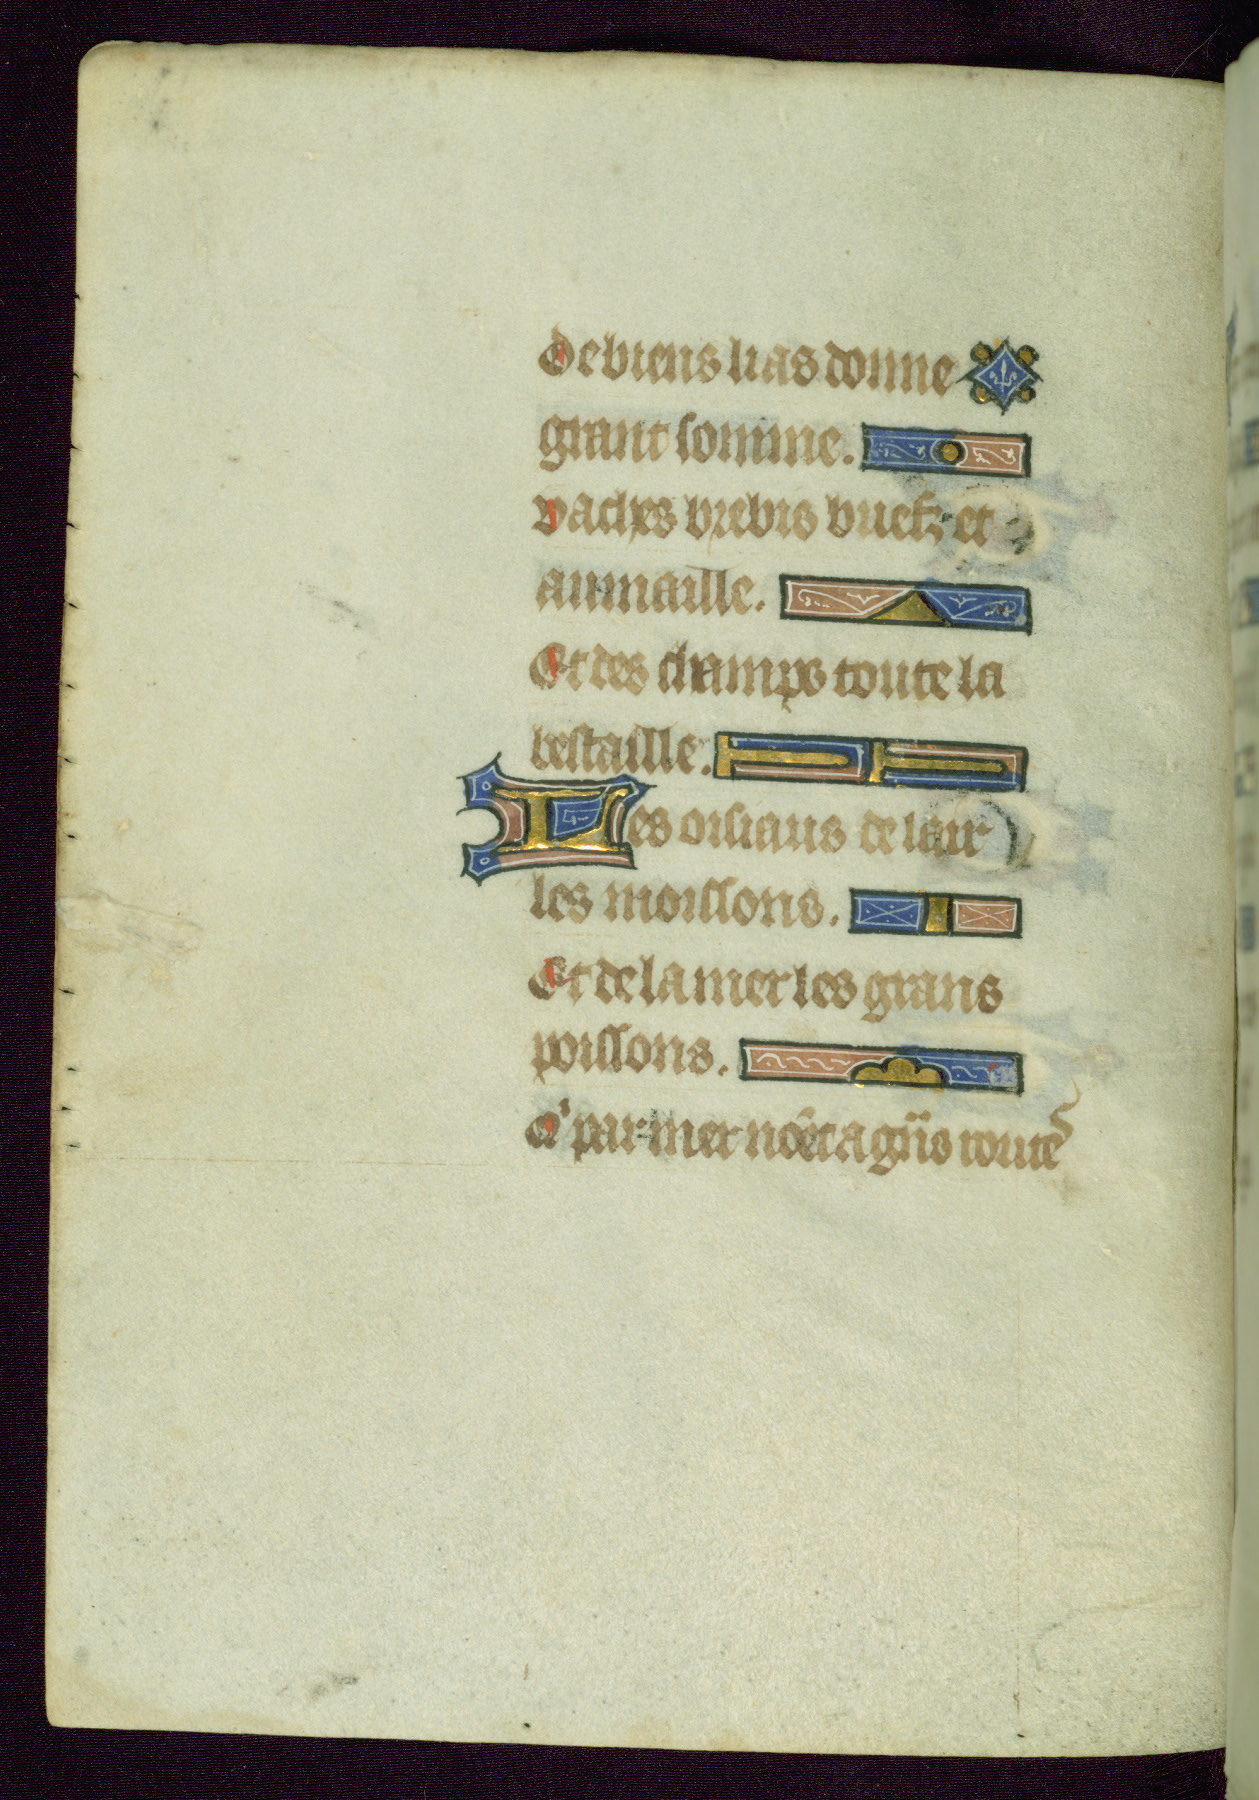 De biens li as donne
grant somme.
vaches brebis buefz et
aumaille.
Et des champs toute la
bestaille.
Les oisiaus de lair
les moissons.
Et de la mer les grans
poissons.
par mer